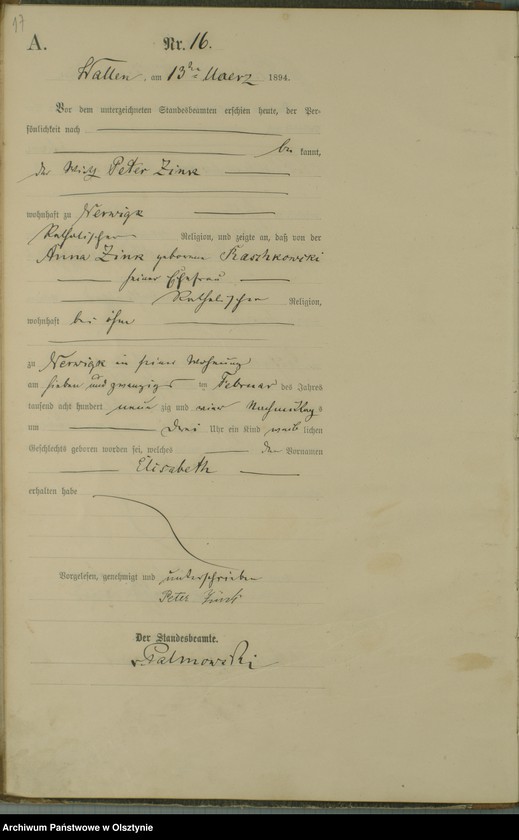 17
A.
Nr. 16.
Wallen, am 13ten Maerz 1894.
Vor dem unterzeichneten Standesbeamten erschien heute, der Per-
sönlichkeit nach
be kannt,
der Wirth Peter Zink
wohnhaft zu Nerwigk
katholischer Religion, und zeigte an, daß von der
Anna Zink geborene Kaschkowski
seiner Ehefrau
katholischer Religion,
wohnhaft bei ihm
zu Nerwigk in seiner Wohnung
am sieben und zwanzigs ten Februar des Jahres
tausend acht hundert neun zig und vier Nachmittags
um drei Uhr ein Kind weib lichen
Geschlechts geboren worden sei, welches den Vornamen
Elisabeth
erhalten habe
Vorgelesen, genehmigt und unterschrieben
Peter Zink
Der Standesbeamte.
Palmowski
Archiwum Państwowe w Olsztynie